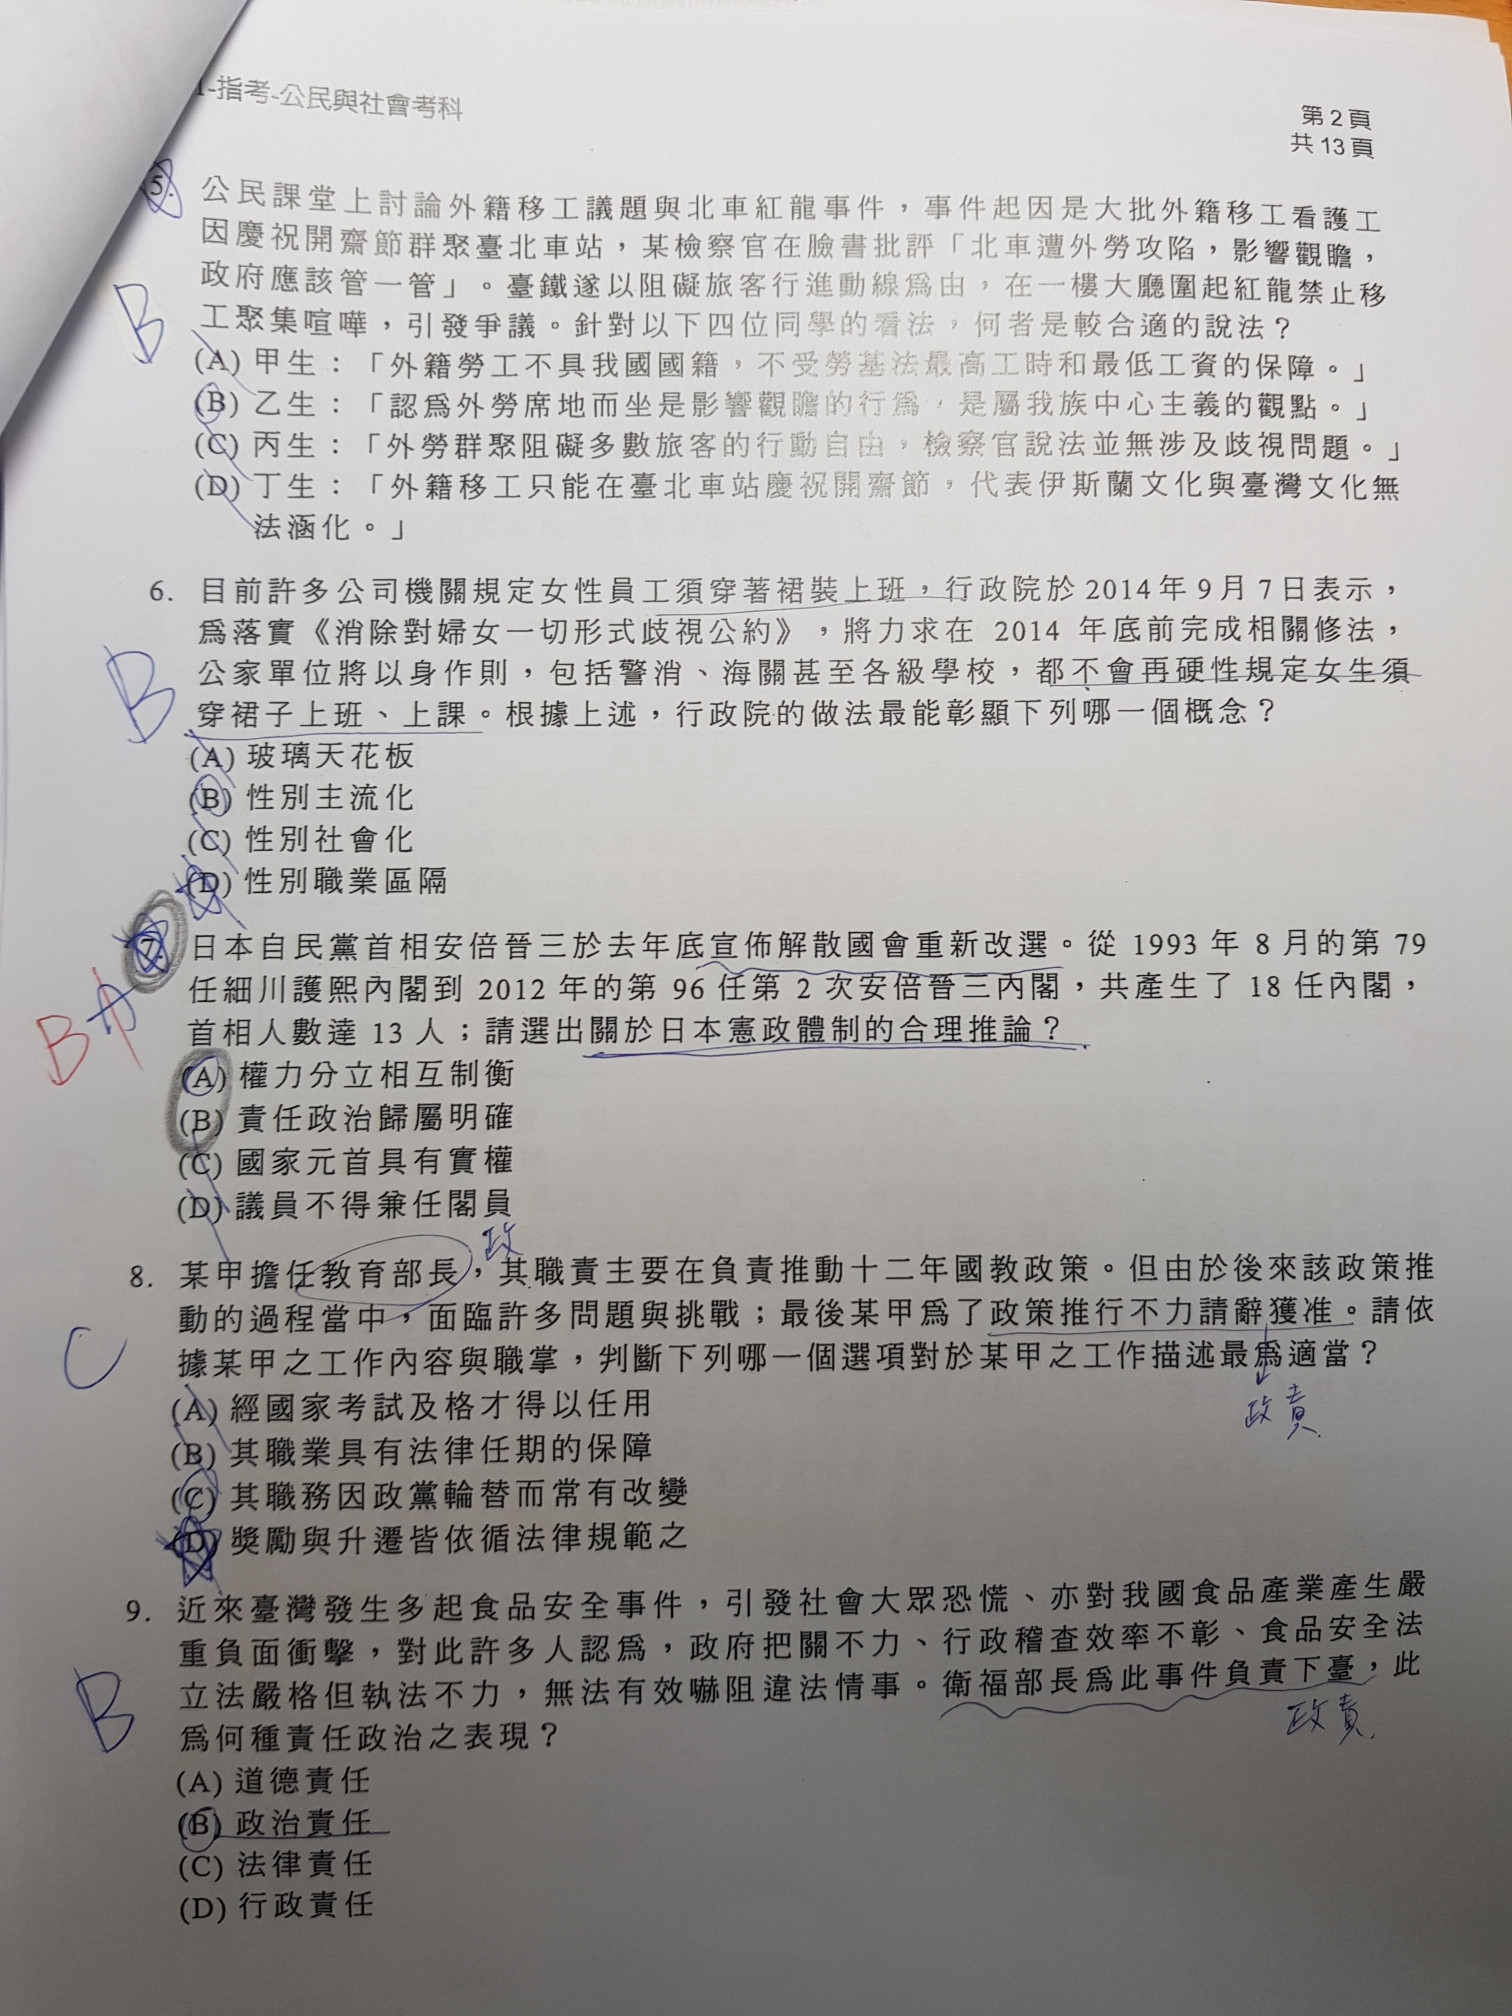 -指考-公民與社會考科
第2頁
共13頁
5. 公民課堂上討論外籍移工議題與北車紅龍事件，事件起因是大批外籍移工看護工
因慶祝開齋節群聚臺北車站，某檢察官在臉書批評「北車遭外勞攻陷，影響觀瞻，
政府應該管一管」。臺鐵遂以阻礙旅客行進動線為由，在一樓大廳圍起紅龍禁止移
工聚集喧嘩，引發爭議。針對以下四位同學的看法，何者是較合適的說法？
B
(A) 甲生：「外籍勞工不具我國國籍，不受勞基法最高工時和最低工資的保障。」
(B) 乙生：「認為外勞席地而坐是影響觀瞻的行為，是屬我族中心主義的觀點。」
(C) 丙生：「外勞群聚阻礙多數旅客的行動自由，檢察官說法並無涉及歧視問題。」
(D) 丁生：「外籍移工只能在臺北車站慶祝開齋節，代表伊斯蘭文化與臺灣文化無
法涵化。」
6. 目前許多公司機關規定女性員工須穿著裙裝上班，行政院於2014年9月7日表示，
為落實《消除對婦女一切形式歧視公約》，將力求在 2014 年底前完成相關修法，
公家單位將以身作則，包括警消、海關甚至各級學校，都不會再硬性規定女生須
穿裙子上班、上課。根據上述，行政院的做法最能彰顯下列哪一個概念？
B
(A) 玻璃天花板
(B) 性別主流化
(C) 性別社會化
(D) 性別職業區隔
7. 日本自民黨首相安倍晉三於去年底宣佈解散國會重新改選。從 1993 年 8 月的第 79
任細川護熙內閣到 2012 年的第 96 任第 2 次安倍晉三內閣，共產生了 18 任內閣，
首相人數達 13 人；請選出關於日本憲政體制的合理推論？
B A
(A) 權力分立相互制衡
(B) 責任政治歸屬明確
(C) 國家元首具有實權
(D) 議員不得兼任閣員
政
8. 某甲擔任教育部長，其職責主要在負責推動十二年國教政策。但由於後來該政策推
動的過程當中，面臨許多問題與挑戰；最後某甲為了政策推行不力請辭獲准。請依
據某甲之工作內容與職掌，判斷下列哪一個選項對於某甲之工作描述最為適當？
C
政責
(A) 經國家考試及格才得以任用
(B) 其職業具有法律任期的保障
(C) 其職務因政黨輪替而常有改變
(D) 獎勵與升遷皆依循法律規範之
9. 近來臺灣發生多起食品安全事件，引發社會大眾恐慌、亦對我國食品產業產生嚴
重負面衝擊，對此許多人認為，政府把關不力、行政稽查效率不彰、食品安全法
立法嚴格但執法不力，無法有效嚇阻違法情事。衛福部長為此事件負責下臺，此
為何種責任政治之表現？
B
政責
(A) 道德責任
(B) 政治責任
(C) 法律責任
(D) 行政責任